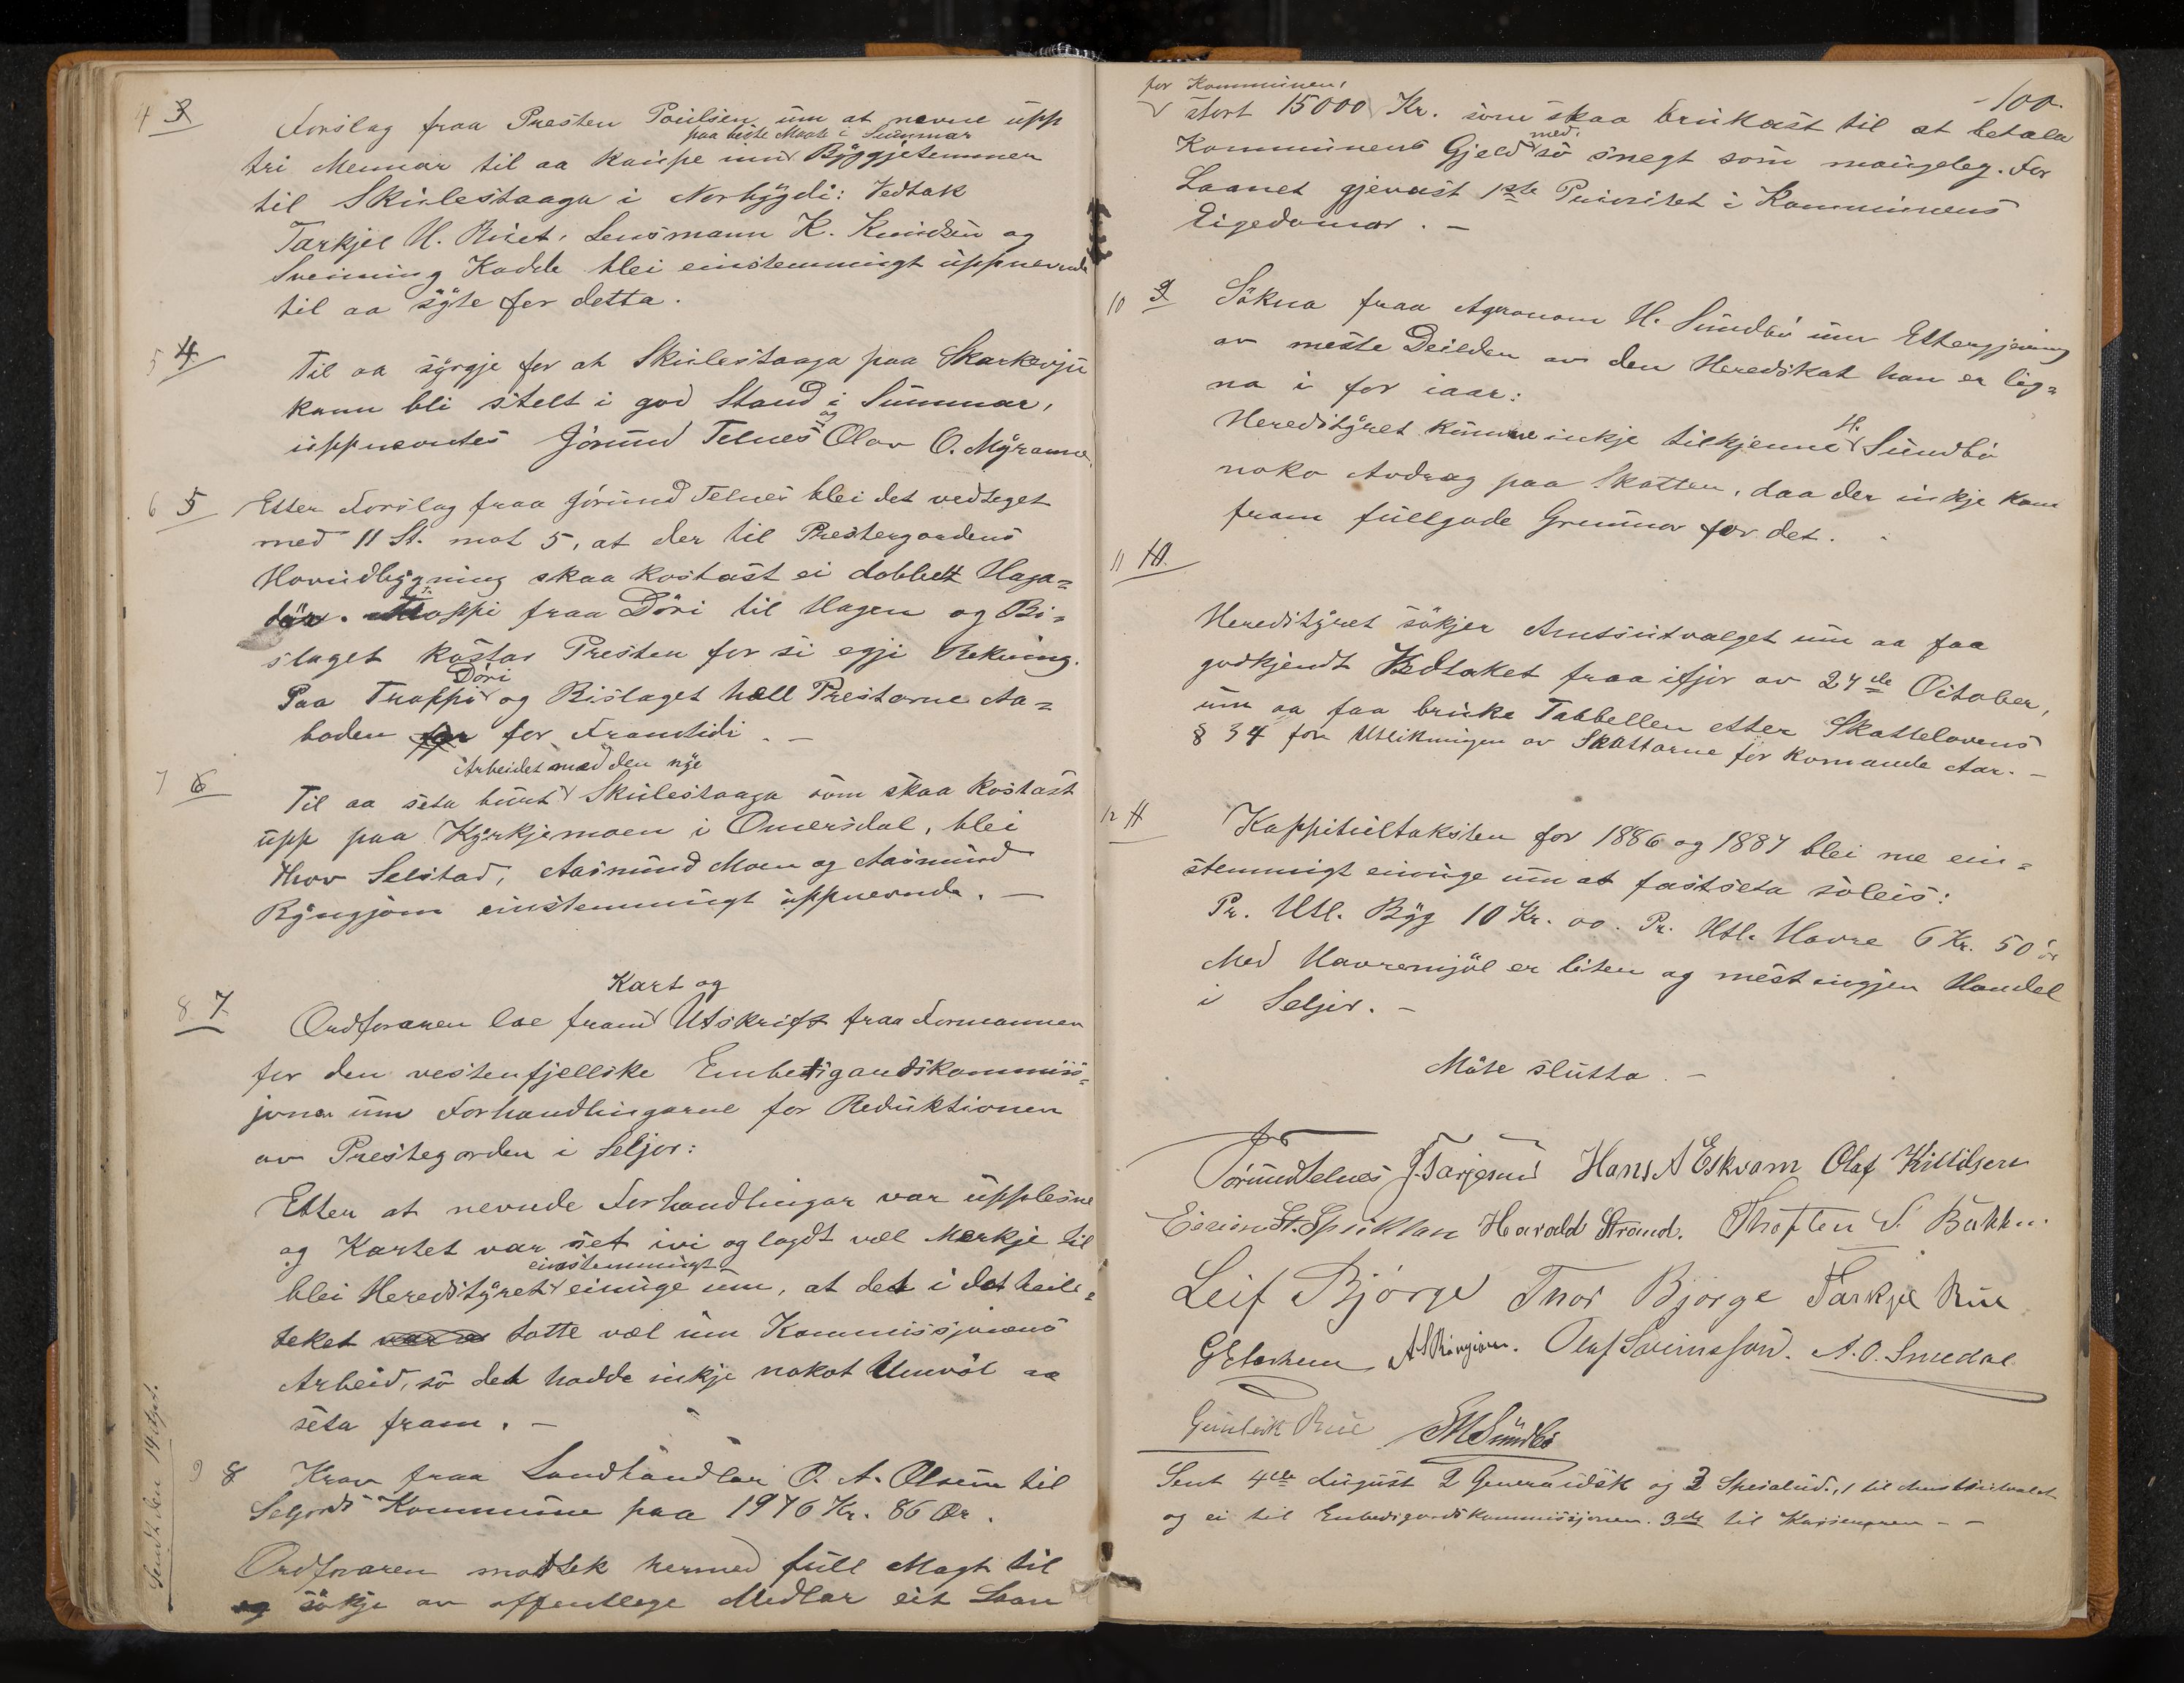 4 3 Forslag fraa Presten Poulsen um at nevne upp
paa beste Maate i Summar
tri Mennar til aa kaupe inn Byggjetemmer
til Skulestaaga i Norbygdi: Vedtak
Tarkjel H. Rue, Lensmann K. Knudsen og
Sveinung Kodde blei einstemmingt uppnevnde
til aa syte for detta.
5 4 Til aa syrgje for at Skulestaaga paa Skarkevju
kann bli stelt i god Stand i Summar,
uppnevntes Jörund Telnes og Olav O. Myrame.
6 5 Etter Forslag fraa Jörund Telnes blei det vedteget
med 11 St. mot 5, at der til Prestergardens
Hovudbygning skaa kostast ei dobbelt Haga=
dör. Troppi fraa Döri til Hagen og Bi=
slaget kostar Presten for si egji Rekning.
Paa Troppi Döri og Bislaget hæll Prestarne Aa=
boden for Framtidi. —
Arbeidet med den nye
7 6 Til aa seta burt Skulestaaga som skaa kostast
upp paa Kyrkjemoen i Omersdal, blei
Hrov Selstad, Aasmund Moen og Aasmund
Ryngjom einstemmingt uppnevnde. —
Kart og
8 7 Ordforaren lae fram Utskrift fraa Formannen
for den vestenfjellske Embetsgardskommiss=
jonen um Forhandlingarne for Reduktionen
av Prestegarden i Seljor:
Etter at nevnde Forhandlingar var upplesne
og Kartet var set ivi og lagdt væl Merkje til
einstemmingt
blei Heredstyret einuge um, at det i det heile=
teket totte væl um Kommissjonens
Arbeid, so det hadde inkje nokot Umvöl aa
seta fram. —
9 8 Krav fraa Landhandlar O. A. Olsen til
Seljords Kommune paa 1976 Kr. 86 Ør.
Ordforaren motek hermed full Magt til
og sökje av offentlege Medlar eit Laan
Sendt den 14 Sept.
100.
for Kommunen,
stort 15000 Kr. som skaa brukast til at betala
Kommunens Gjeld med, so snegt som mougeleg. For
Laanet gjevast 1ste Prioritet i Kommunens
Eigedomar. —
10 9 Sökna fraa Agronom H. Sundbö um Ettergjeving
av meste Deilden av den Heredskat han er lig=
na i for iaar:
Heredstyret kunne inkje tilkjenne H. Sundbö
noko Avdrag paa Skatten, daa der inkje kom
fram fullgode Grunnar for det. .
11 10.
Heredstyret sökjer Amtsutvalget um aa faa
godkjendt Vedtaket fraa ifjor av 24de October,
um aa faa bruke Tabbellen etter Skattelovens
§ 34 for Utlikningen av Skattarne for komande Aar. —
12 11 Kappitultaksten for 1886 og 1887 blei me ein=
stemmigt einuge um at fastseta soleis:
Pr. Htl. Byg 10 Kr. 00. Pr. Htl. Havre 6 Kr. 50 ör
Med Havremjöl er liten og mest ingjen Handel
i Seljor. —
Möte slutta. —
Jörund Telnes J. Tarjesen Hans A Eskvam Olaf Kittilsen
Eivind St. Harald Strand. Thoften S. Bakken.
Leif Bjørge Thor Bjørge Tarkjel Rue
A S Ringjom. Olaf Sveinsson. A. O. Smedal
Gunleik Rue H Sundbö
Sent 4de August 2 Generaludsk og 3 Spesialud., 1 til Amtsutvalet
og ei til Embedsgardskommissjonen. 3de til Kasseraren — —